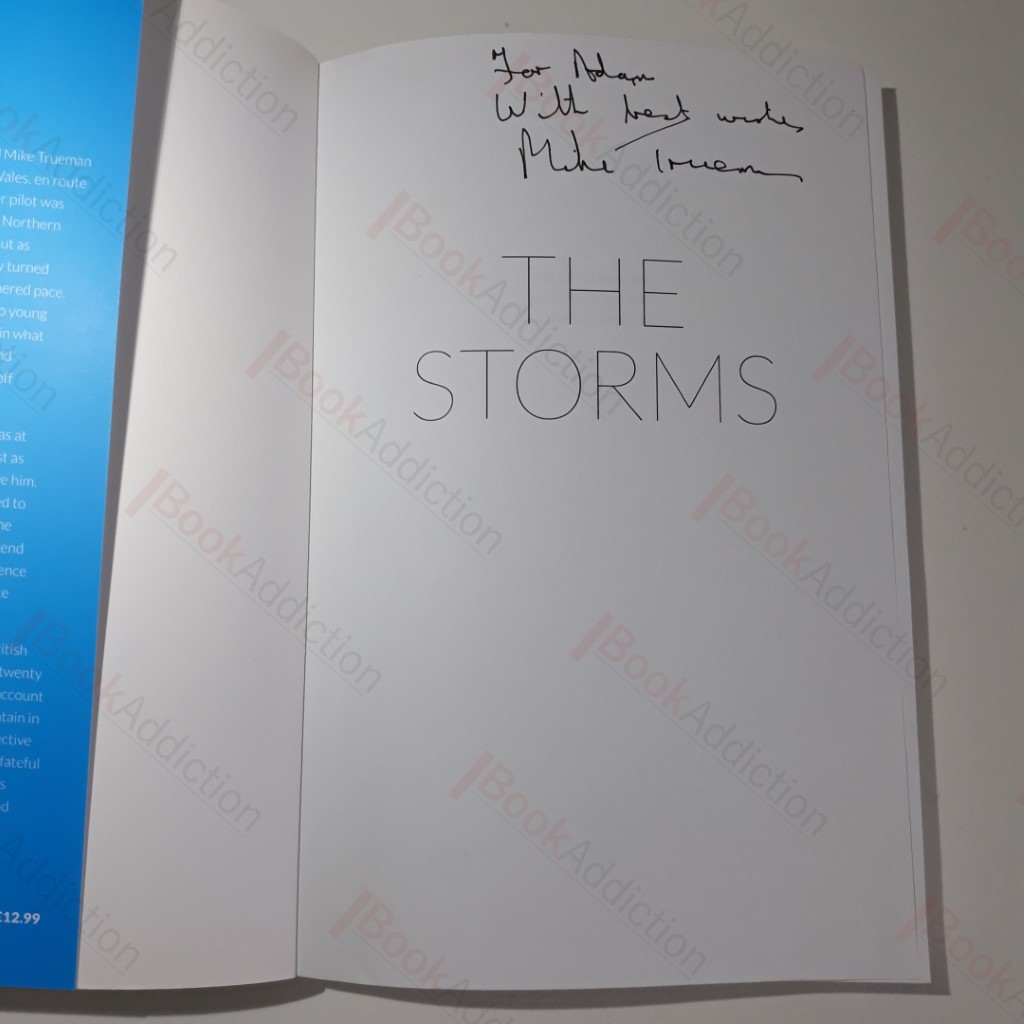 Mike Trueman
Wales, en route
r pilot was
Northern
ut as
y turned
ered pace.
o young
in what
nd
olf
as at
st as
e him.
ed to
he
end
ence
te
ritish
twenty
account
tain in
ective
fateful
s
nd
£12.99
For Adam
With best wishes
Mike Trueman
THE
STORMS
BookAddiction